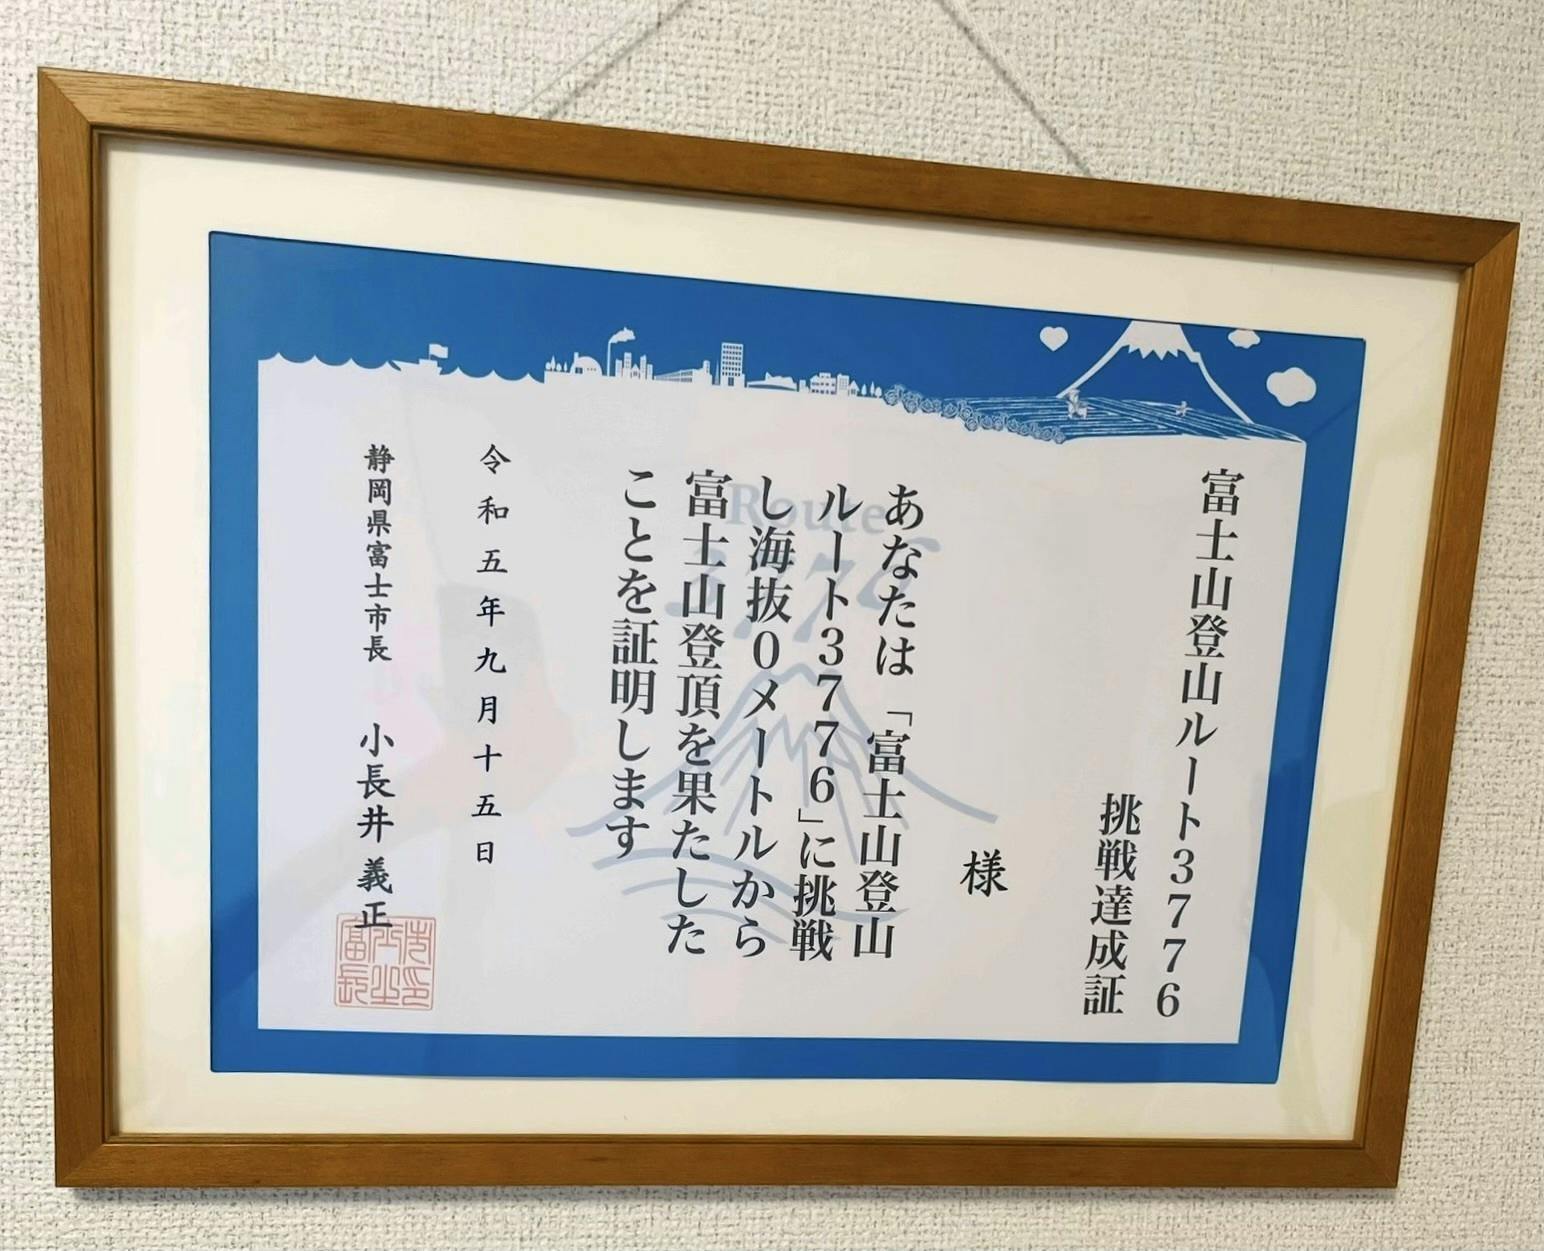 富士山登山ルート3776
挑戦達成証
様
あなたは「富士山登山
ルート3776」に挑戦
し海抜0メートルから
富士山登頂を果たした
ことを証明します
令和五年九月十五日
静岡県富士市長 小長井義正
Route
3776